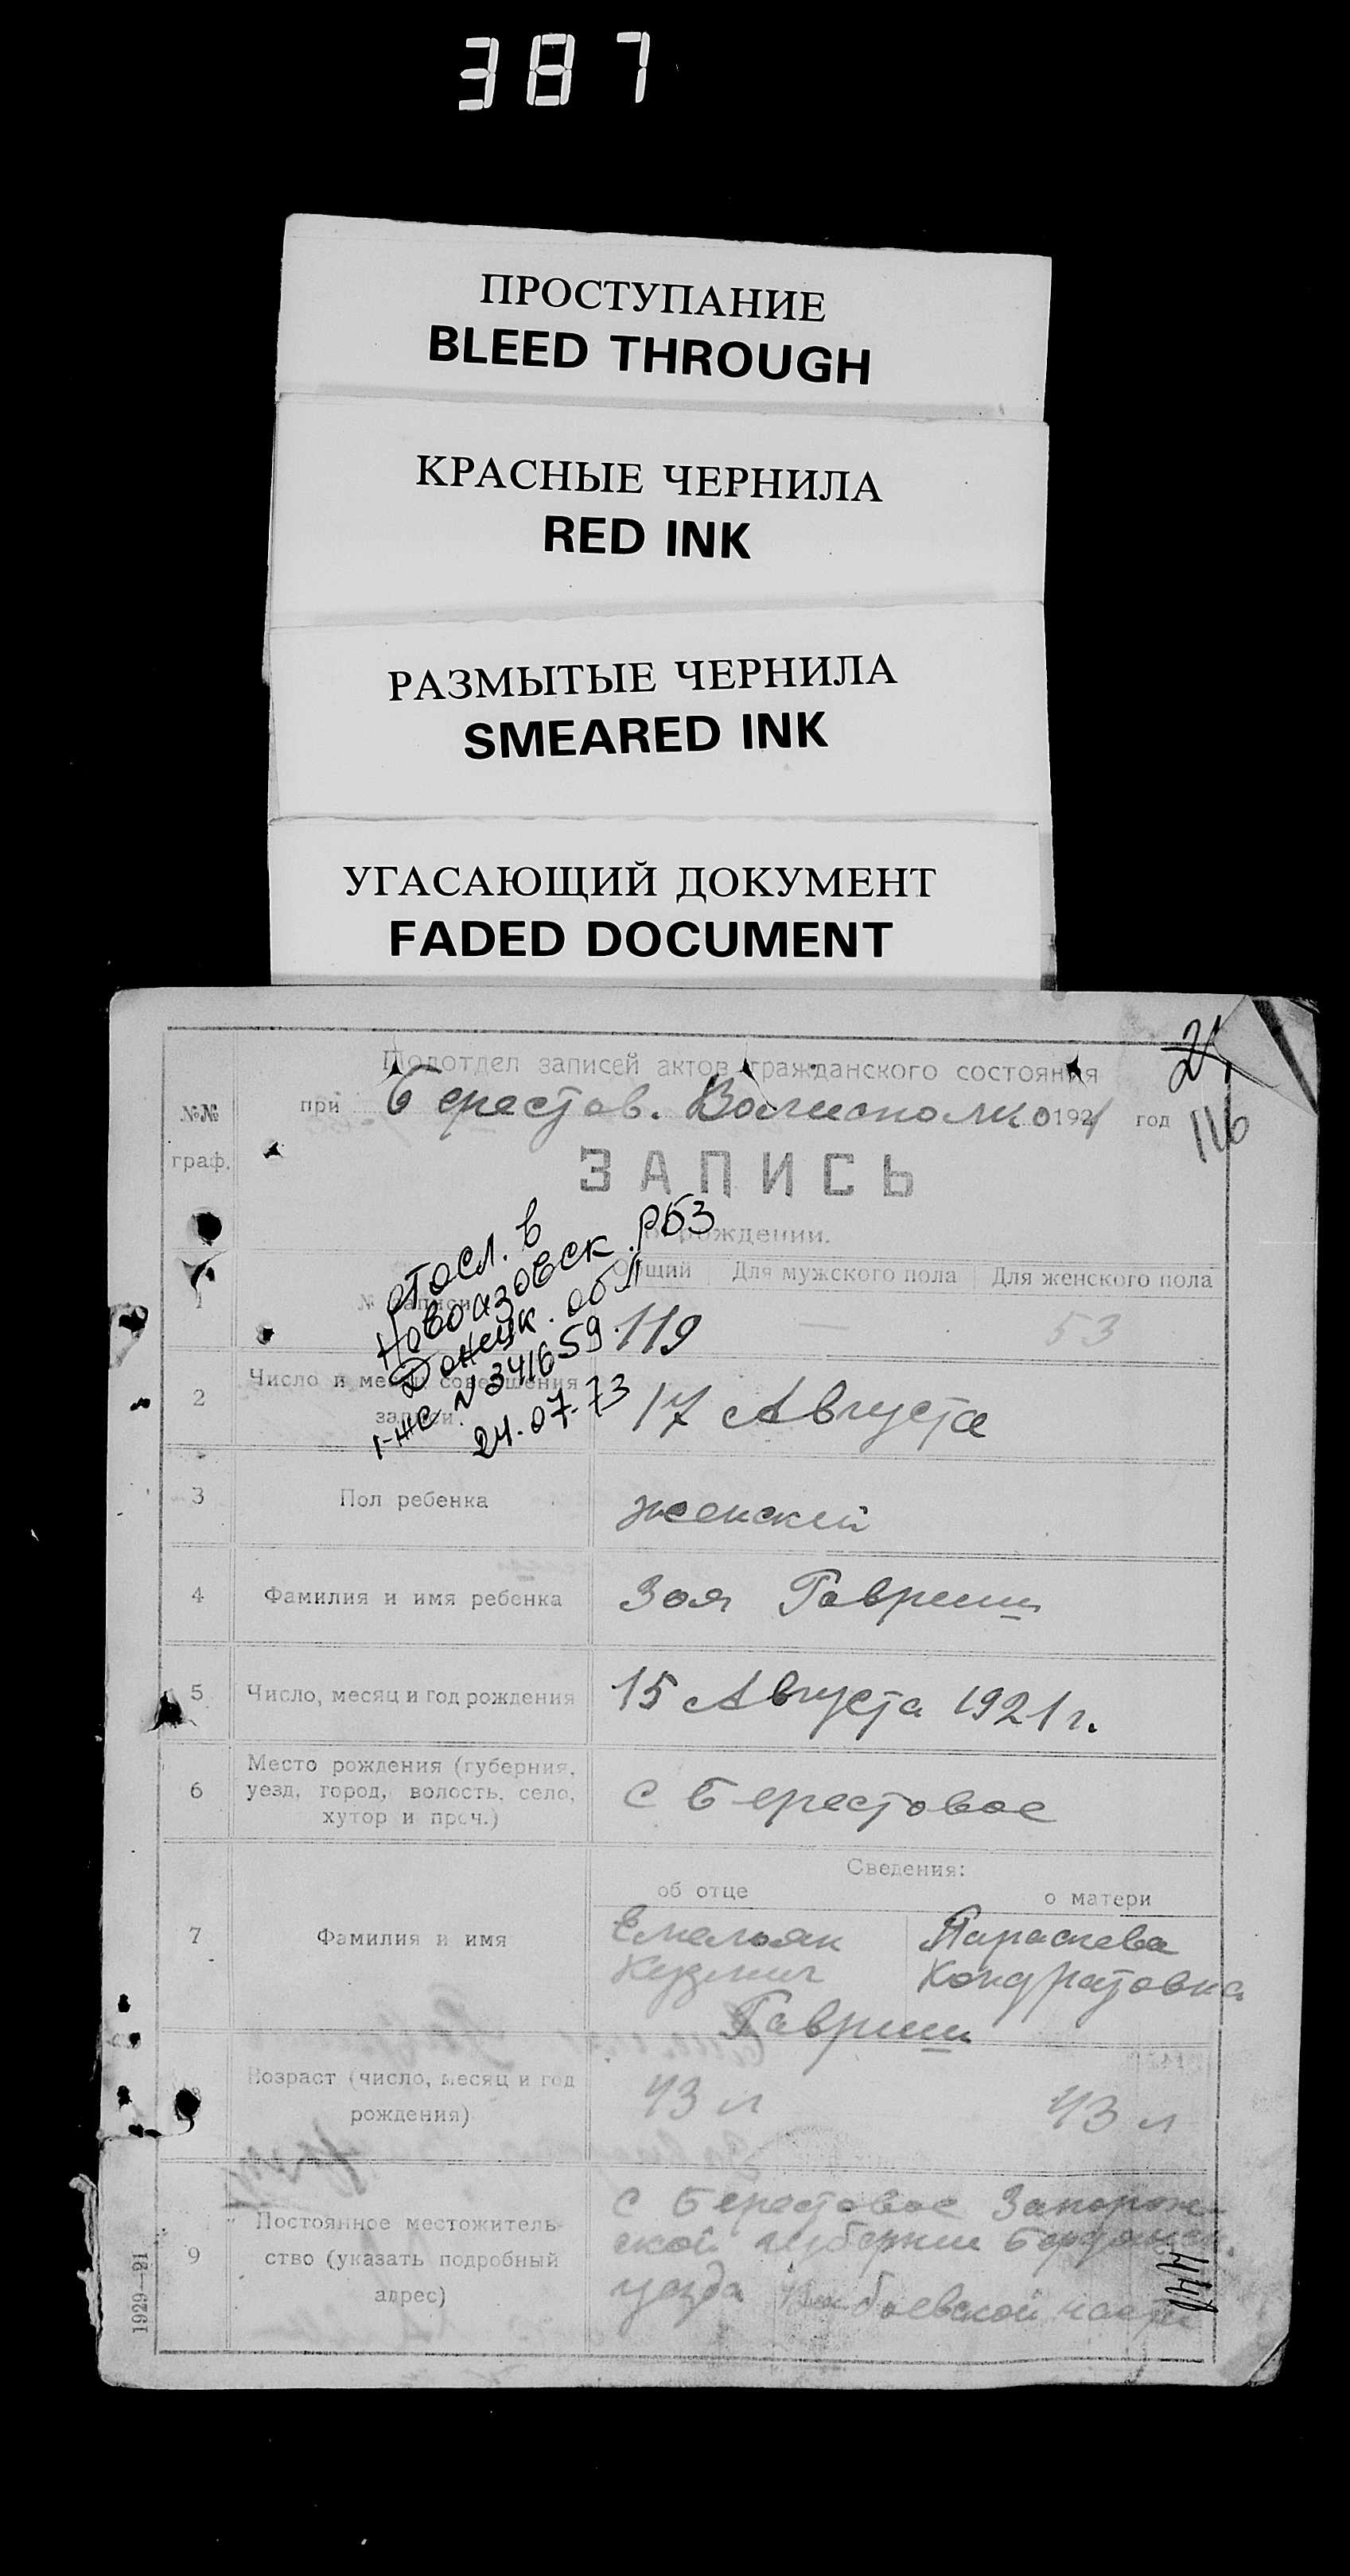 387
ПРОСТУПАНИЕ
BLEED THROUGH
КРАСНЫЕ ЧЕРНИЛА
RED INK
РАЗМЫТЫЕ ЧЕРНИЛА
SMEARED INK
УГАСАЮЩИЙ ДОКУМЕНТ
FADED DOCUMENT
21
116
Подотдел записей актов гражданского состояния
при Берестов. Волисполко 1921 год
№№ граф.
ЗАПИСЬ
о рождении.
отосл. в
Новоазовск. рбз
Донецк. обл
I-жс N 341659.
24.07.73
Общий Для мужского пола Для женского пола
1 № записи 119 — 53
2 Число и месяц совершения записи 17 Августа
3 Пол ребенка женский
4 Фамилия и имя ребенка Зоя Гавриш
5 Число, месяц и год рождения 15 Августа 1921 г.
6 Место рождения (губерния,
уезд, город, волость, село,
хутор и проч.)
с Берестовое
Сведения:
об отце о матери
7 Фамилия и имя
Емельян Параскева
Кузмич Кондратовна
Гавриш
Возраст (число, месяц и год
рождения)
43 л 43 л
9 Постоянное местожитель-
ство (указать подробный
адрес)
с Берестовое Запорож-
ской губернии Бердянск.
уезда
1929—21